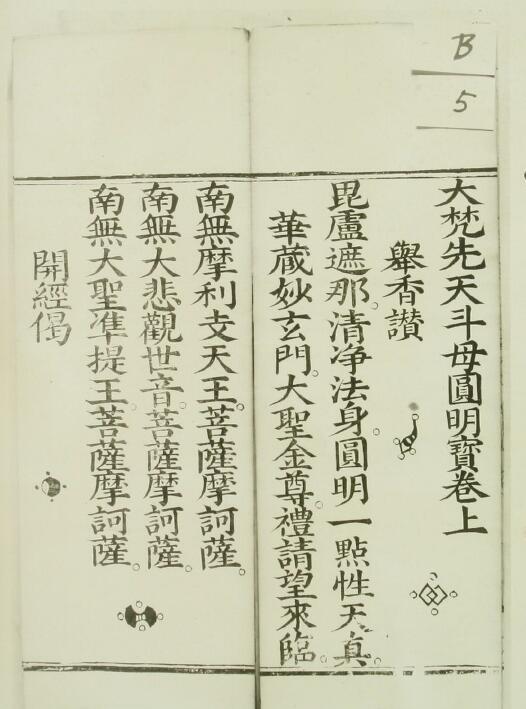 B
5
大梵先天斗母圓明寳卷上
舉香讃
毘盧遮那。清净法身。圓明一點性天真。
華蔵妙玄門。大聖金尊。禮請望來臨。
南無摩利支天王。菩薩摩訶薩。
南無大悲觀世音菩薩摩訶薩。
南無大聖凖提王菩薩摩訶薩。
開經偈